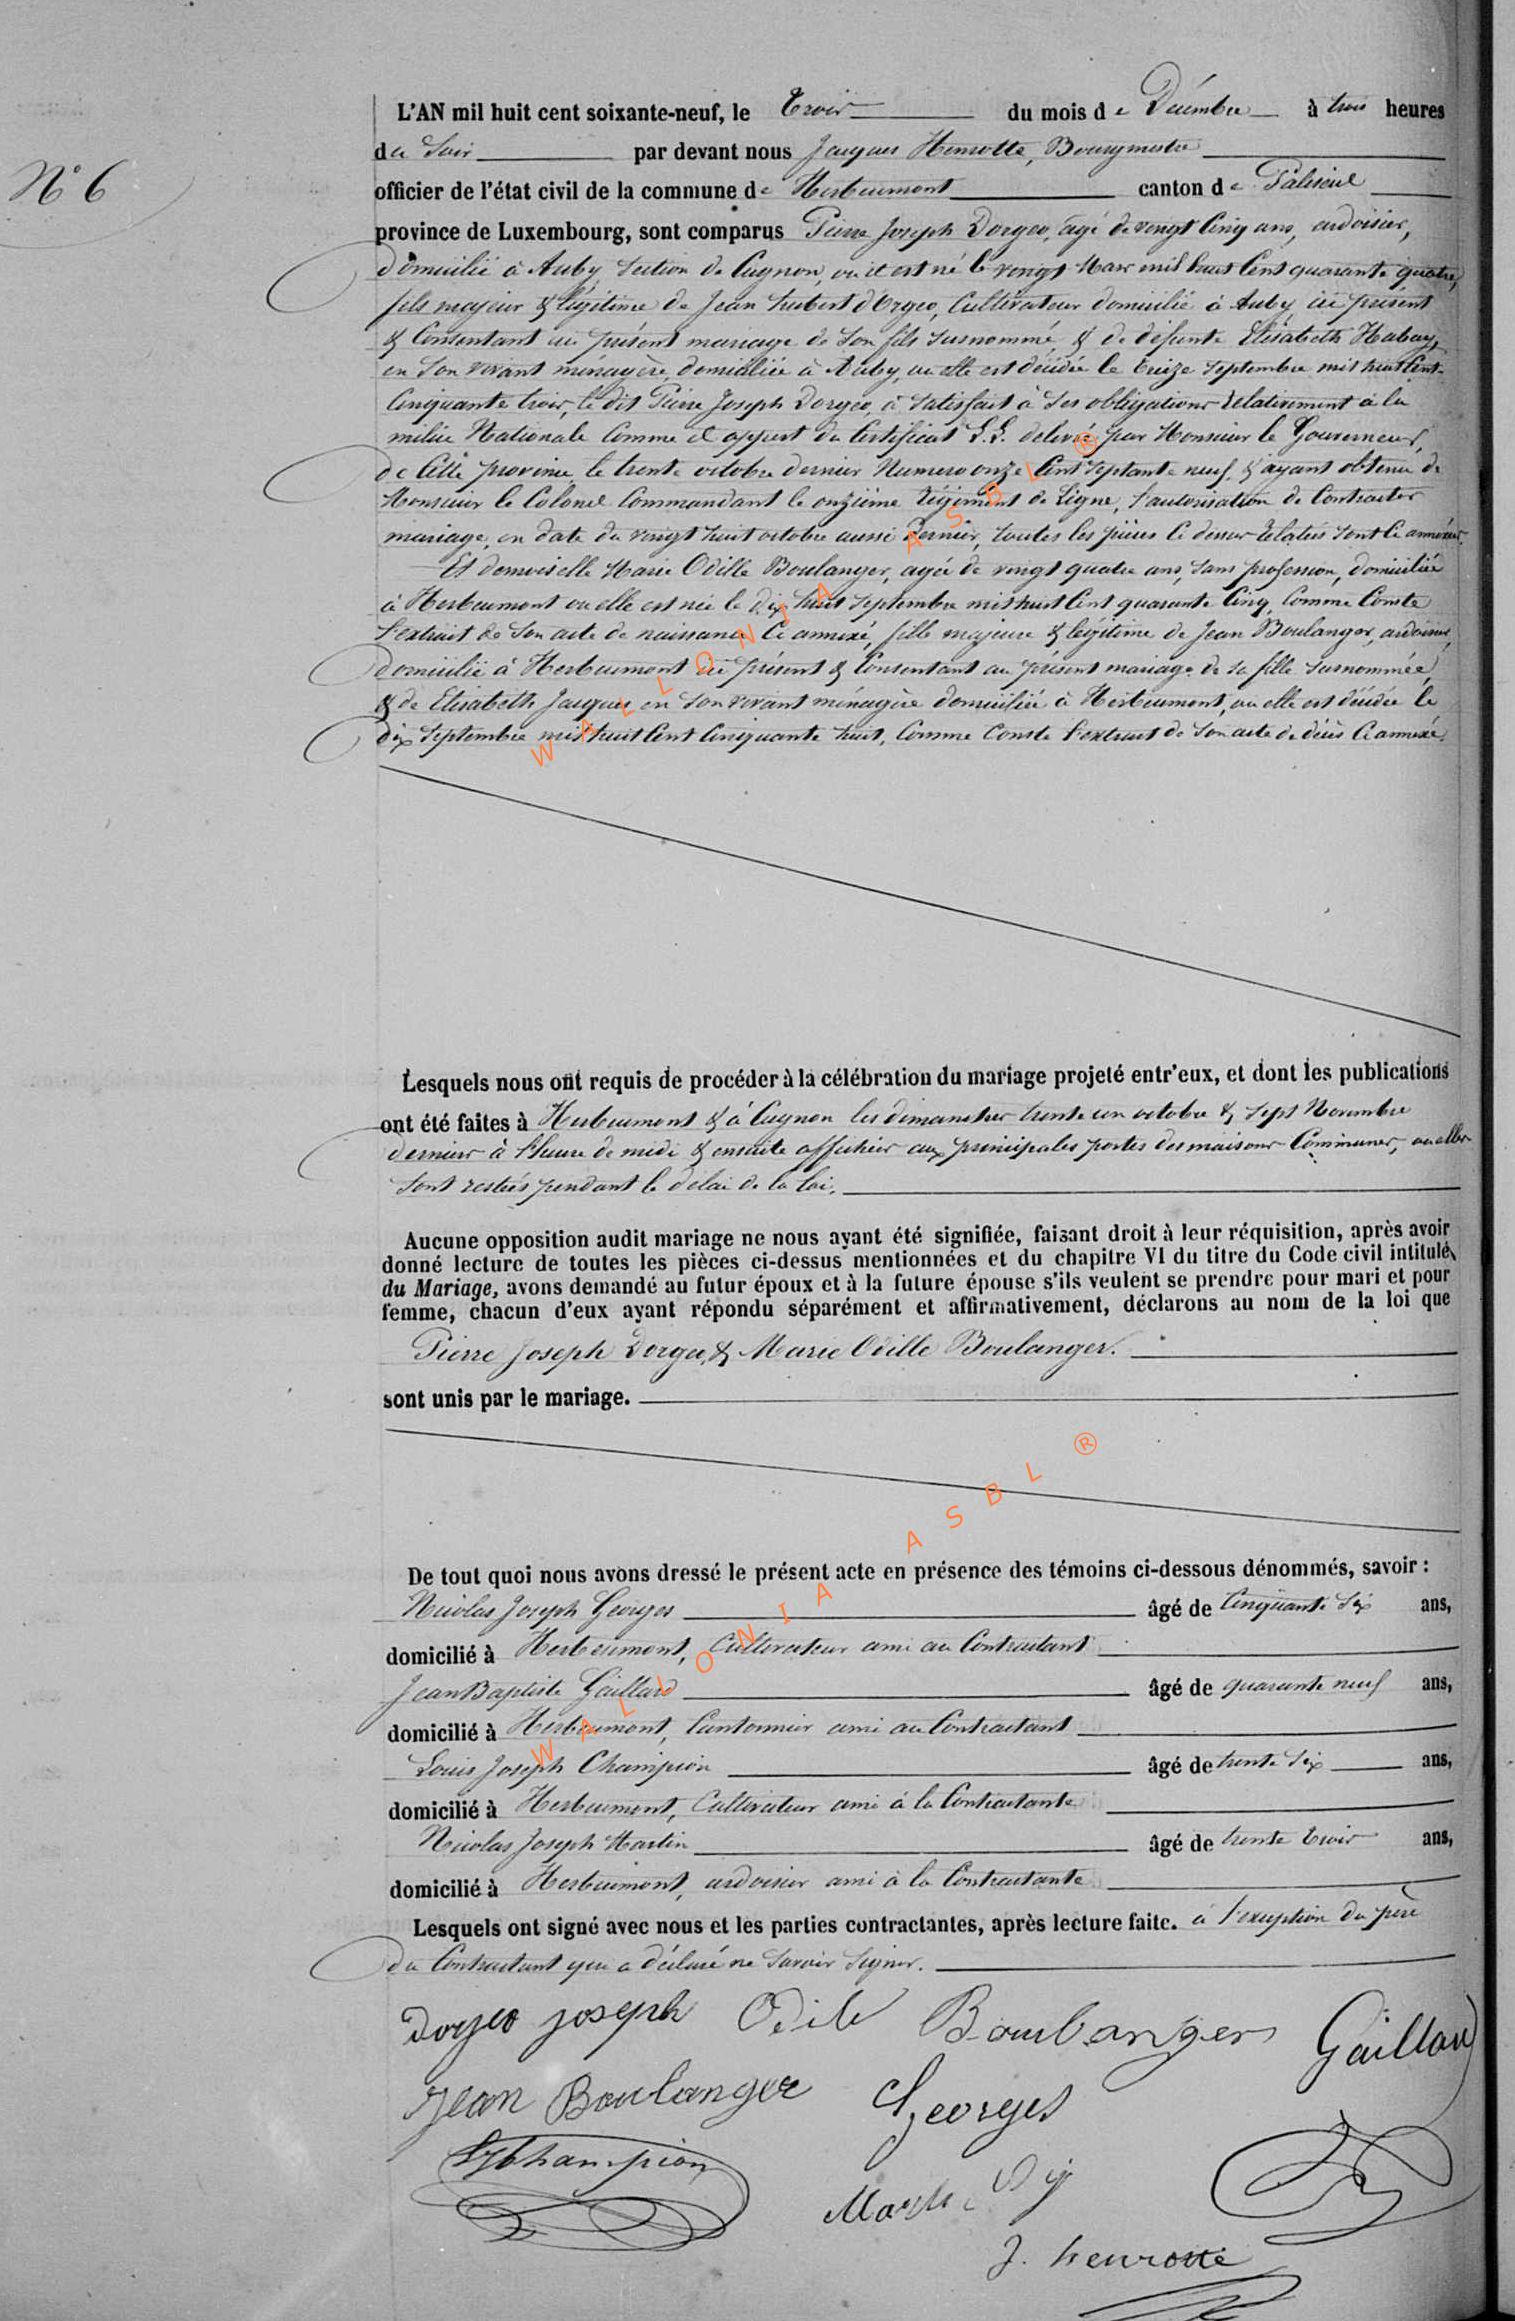 N° 6
L'AN mil huit cent soixante-neuf, le trois du mois de Décembre à trois heures
du Soir par devant nous Jacques Henrotte, Bourgmestre
officier de l'état civil de la commune de Herbeumont canton de Paliseul
province de Luxembourg, sont comparus Pierre Joseph Dorgeo, agé de vingt cinq ans, ardoisier,
domicilié à Auby section de Cugnon, ou il est né le vingt Mars mil huit cent quarante quatre,
fils majeur & légitime de Jean hubert d'Orgeo, Cultivateur domicilié à Auby, ici présent
& Consentant au présent mariage de Son fils susnommé, & de défunte Elisabeth Habay,
en Son vivant ménagère, domiciliée à Auby, ou elle est décédée le treize Septembre mil huit Cent
Cinquante trois, le dit Pierre Joseph Dorgeo, à Satisfait à Ses obligations relativement à la
milice Nationale Comme il appert du Certificat L.L. délivré par Monsieur le Gouverneur,
de Cette province le trente octobre dernier Numero onze Cent Septante neuf, & ayant obtenu de
Monsieur le Colonel Commandant le onzième régiment de Ligne, l'autorisation de Contracter
mariage, en date du vingt huit octobre aussi Dernier, toutes les pièces Ci dessus relatées Sont Ci annexées.
Et demoiselle Marie Odille Boulanger, agée de vingt quatre ans, Sans profession, domiciliée
à Herbeumont ou elle est née le dix huit Septembre mil huit Cent quarante Cinq, Comme Conste
l'extrait de Son acte de naissance Ci annexé, fille majeure & légitime de Jean Boulanger, ardoisier,
domicilié à Herbeumont ici présent & Consentant au présent mariage de sa fille Susnommée,
& de Elisabeth Jacques en Son vivant ménagère domiciliée à Herbeumont, ou elle est décédée le
dix Septembre mil huit Cent Cinquante huit, Comme Conste l'extrait de Son acte de décès Ci annexé.
Lesquels nous ont requis de procéder à la célébration du mariage projeté entr'eux, et dont les publications
ont été faites à Herbeumont & à Cugnon les dimanches trente un octobre & Sept Novembre
derniers à l'heure de midi & ensuite affichées aux principales portes des maisons Communes, ou elles
Sont restées pendant le délai de la loi.
Aucune opposition audit mariage ne nous ayant été signifiée, faisant droit à leur réquisition, après avoir
donné lecture de toutes les pièces ci-dessus mentionnées et du chapitre VI du titre du Code civil intitulé
du Mariage, avons demandé au futur époux et à la future épouse s'ils veulent se prendre pour mari et pour
femme, chacun d'eux ayant répondu séparément et affirmativement, déclarons au nom de la loi que
Pierre Joseph Dorgeo, & Marie Odille Boulanger.
sont unis par le mariage.
De tout quoi nous avons dressé le présent acte en présence des témoins ci-dessous dénommés, savoir :
Nicolas Joseph Georges âgé de Cinquante Six ans,
domicilié à Herbeumont, Cultivateur ami au Contractant
Jean Baptiste Gaillard âgé de quarante neuf ans,
domicilié à Herbeumont, Cantonnier ami au Contractant
Louis Joseph Champion âgé de trente Six ans,
domicilié à Herbeumont, Cultivateur ami à la Contractante
Nicolas Joseph Martin âgé de trente trois ans,
domicilié à Herbeumont, ardoisier ami à la Contractante
Lesquels ont signé avec nous et les parties contractantes, après lecture faite. à l'exception du père
du Contractant qui a déclaré ne Savoir Signer.
Dorgeo joseph Odile Boulanger Gaillard
Jean Boulanger Georges
Champion
J. henrotte
WALLONIA ASBL ®
WALLONIA ASBL ®